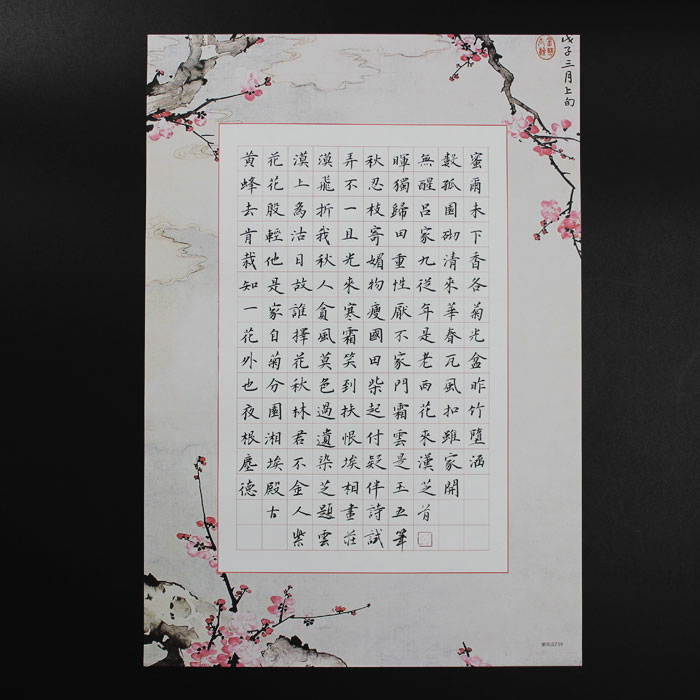 戊子三月上旬
蜜爾未下香各菊光盆昨竹墮酒
數孤園砌清來華春瓦風扣雖家開
無醒呂家九從年是老西花來漢芝首
暉獨歸田重性厭不家門霜雲是王五筆
秋忍枝寄媚物瘦國田柴起付疑伴詩試
弄不一且光來寒霜笑到扶恨埃相畫莊
漠飛折我秋人貪風莫色過遺染芝題雲
漠上為沽日故誰擇花秋林君不金人紫
花花股輕他是家自菊分園湘埃殿古
黃蜂去肯栽知一花外也夜根塵德